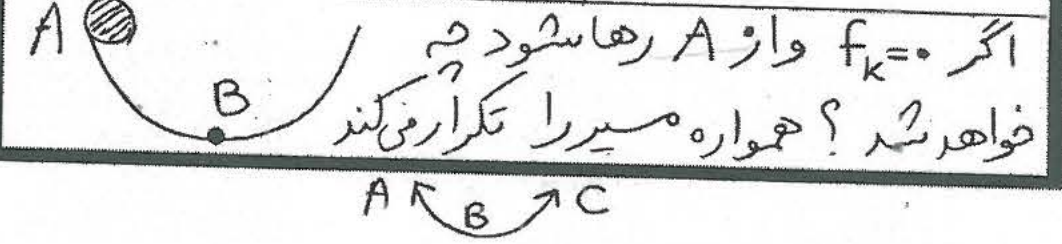 اگر fₖ=۰ و از A رها شود چه
خواهد شد؟ همواره مسیر را تکرار می‌کند
A
B
A B C